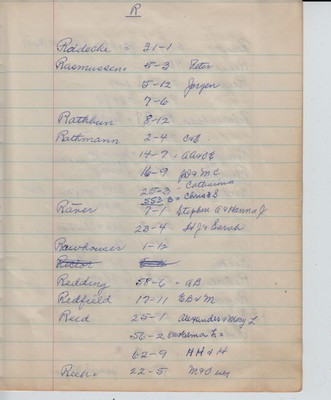 R
Raddechi = 31-1
Rasmussens 5-3 Peter
5-12 Jorgen
7-6
Rathbun 8-12
Rathmann 2-4 C+S
14-7 - A A+C E
16-9 J D + M. C
25-3 - Catharina
353 B = Chris+S
Raver 7-1 Stephen A+Hanna J
23-4 H J + Sarah
Rawhouser 1-12
Rector
Redding 58-6 - A B
Redfield 17-11 E B + M
Reed 25-1 Alexander+Mary L
56-2
62-9 H H + H
22-5